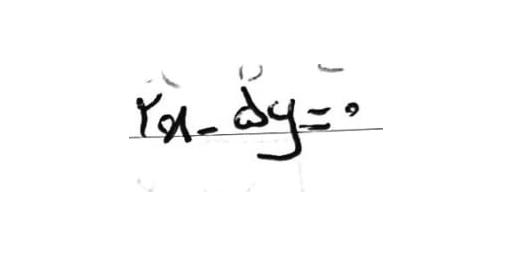 ۲x - ۵y = ۰